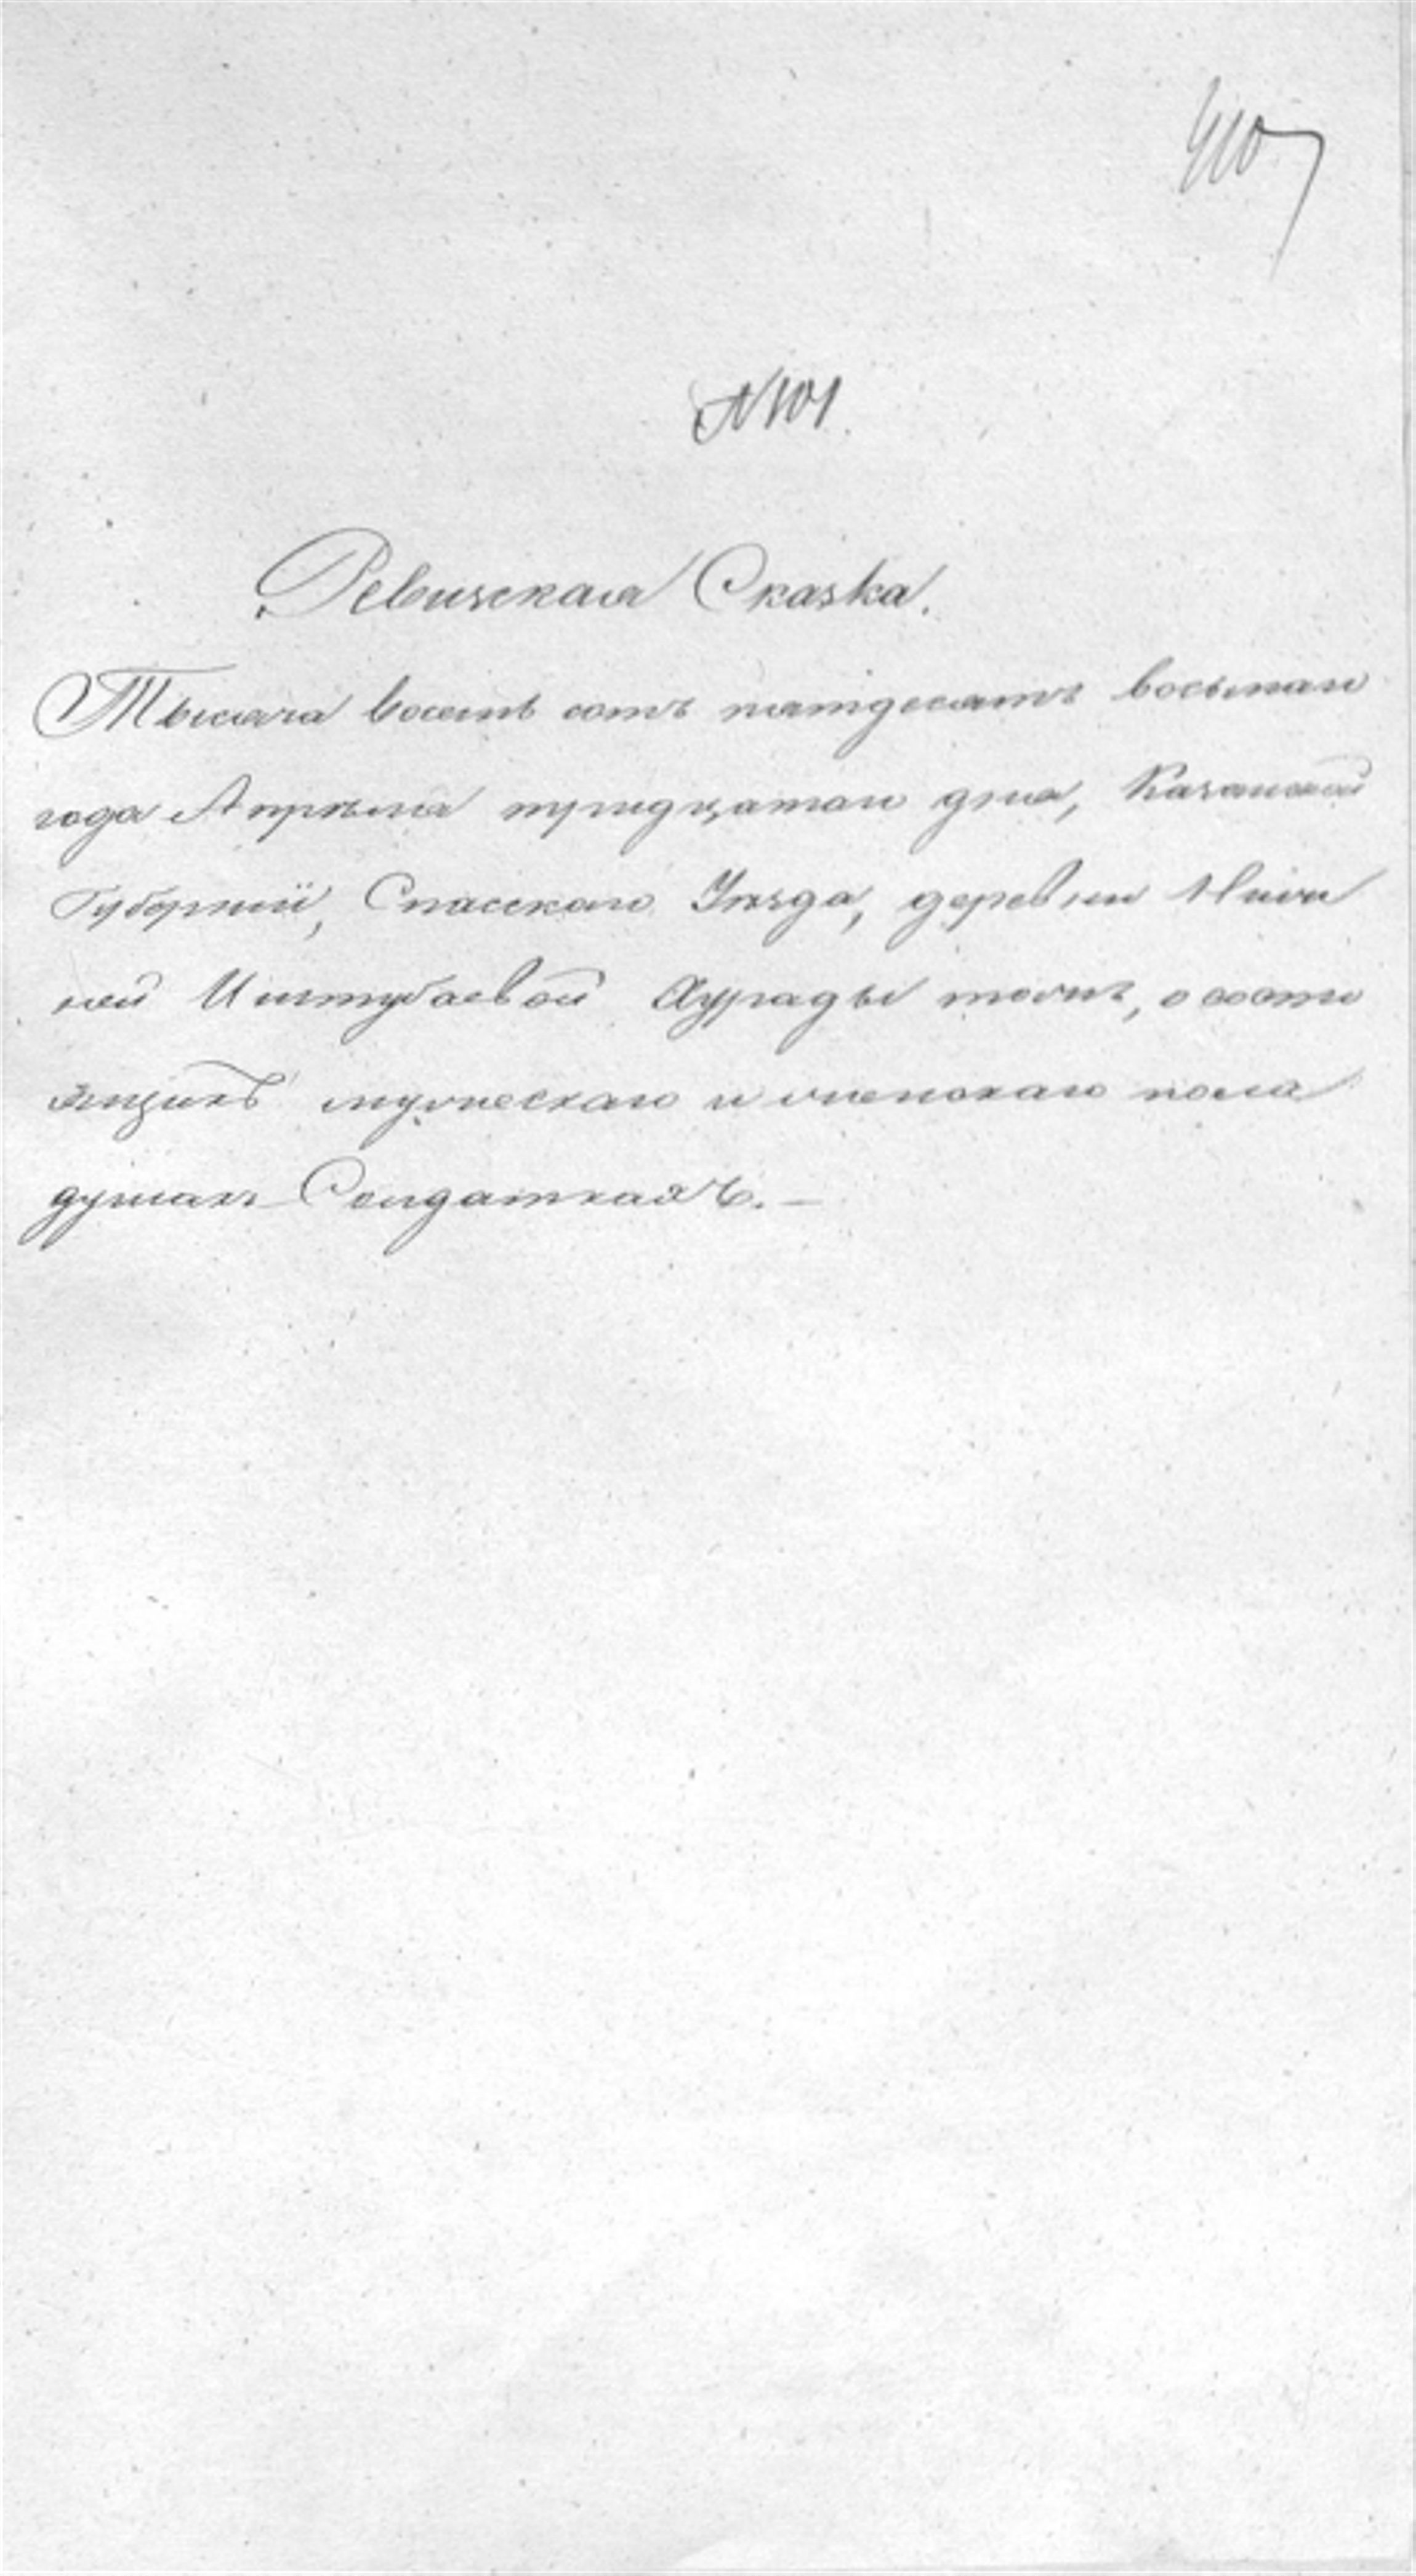 407
№ 101.
Ревизская Сказка.
Тысяча восемь сотъ пятдесятъ восьмаго
года Апрѣля тридцатаго дня, Казанской
Губерніи, Спасскаго Уѣзда, деревни Ниж
ней Иштубаевой Аурады тожъ, о состо
ящихъ мужескаго и женскаго пола
душахъ Солдаткахъ. –